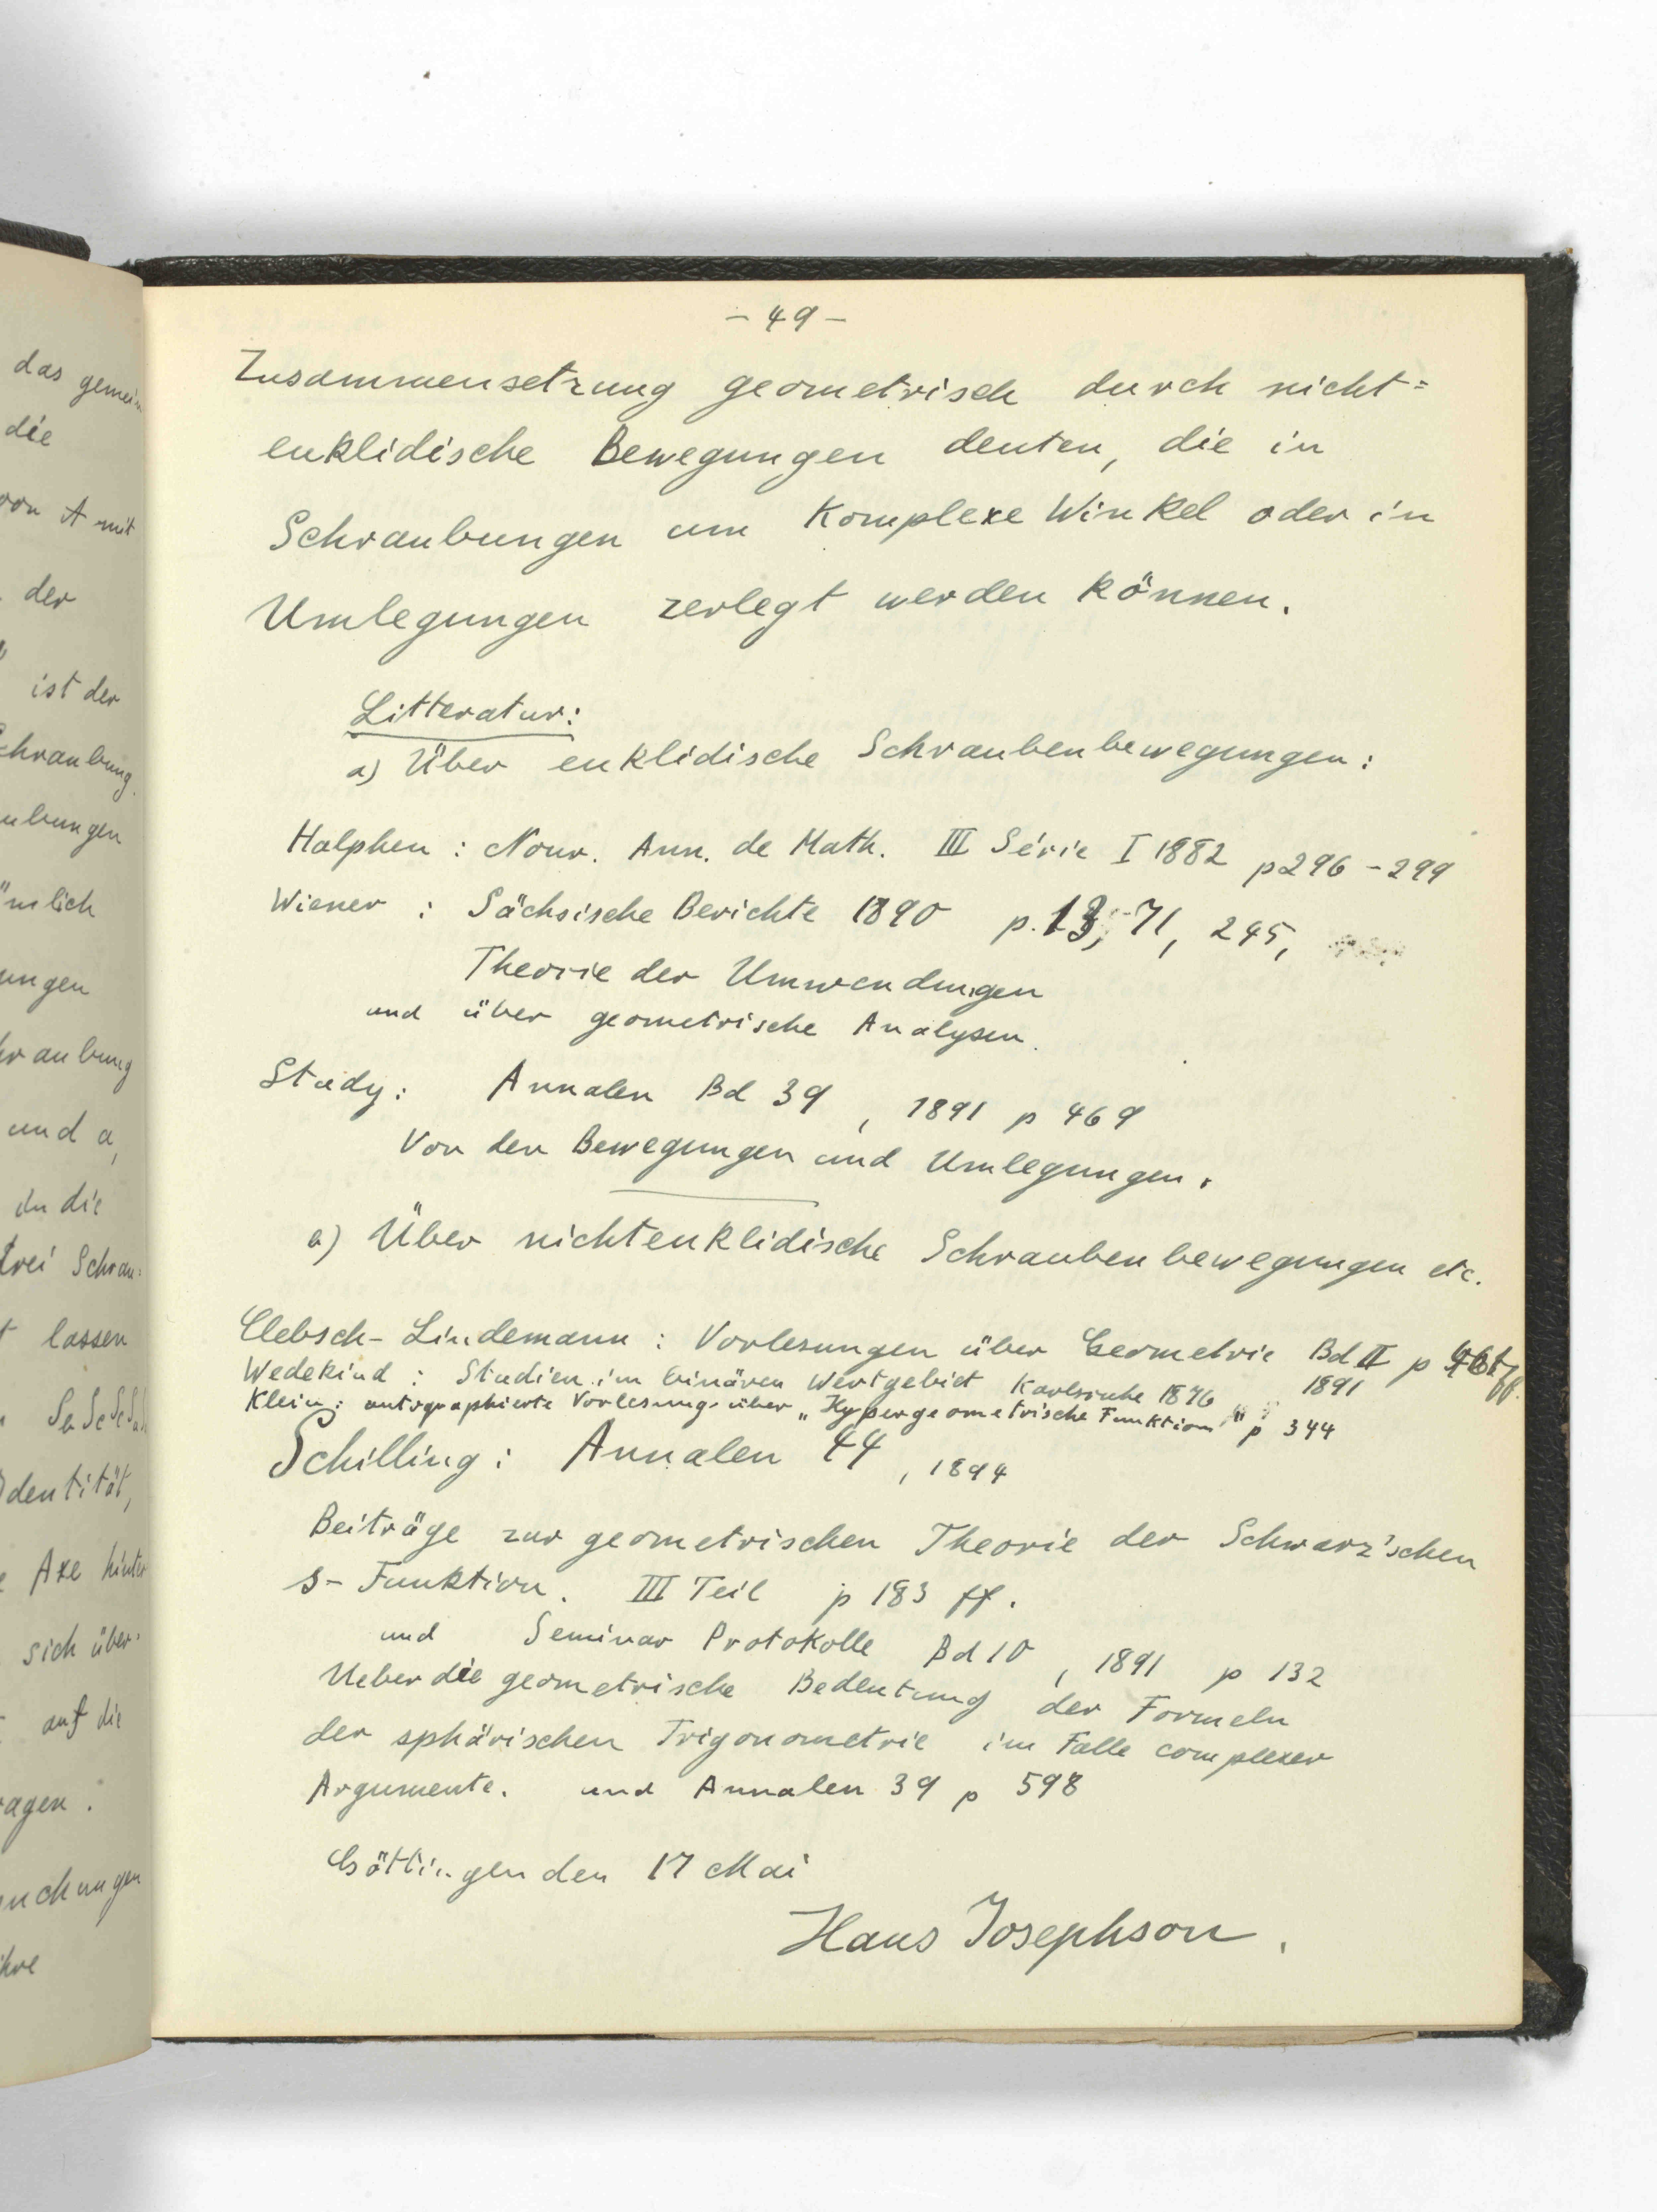 das gemein
die
von A mit
der
ist der
Schraubung.
ubungen
ümlich
ungen
hraubung
und a,
in die
drei Schrau=
t lassen
dentität,
Axe hinter
sich über=
auf die
ragen.
uchungen
ihre
- 49 -
Zusammensetzung geometrisch durch nicht=
euklidische Bewegungen deuten, die in
Schraubungen um komplexe Winkel oder in
Umlegungen zerlegt werden können.
Litteratur:
a) Über euklidische Schraubenbewegungen:
Halphen: Nouv. Ann. de Math. III Série I 1882 p 296-299
Wiener: Sächsische Berichte 1890 p. 13, 71, 245,
Theorie der Umwendungen
und über geometrische Analysen.
Study: Annalen Bd 39, 1891 p 469
Von den Bewegungen und Umlegungen.
a) Über nichteuklidische Schraubenbewegungen etc.
Clebsch-Lindemann: Vorlesungen über Geometrie Bd II p ff.
1891
Wedekind: Studien im binären Wertgebiet Karlsruhe 1876
Klein: autographierte Vorlesung über „Hypergeometrische Funktion" p 344
Schilling: Annalen 44, 1894
Beiträge zur geometrischen Theorie der Schwarz'schen
s-Funktion. III Teil p 183 ff.
und Seminar Protokolle Bd 10, 1891 p 132
Ueber die geometrische Bedeutung der Formeln
der sphärischen Trigonometrie im Falle complexer
Argumente. und Annalen 39 p 598
Göttingen den 17 Mai
Hans Josephson.